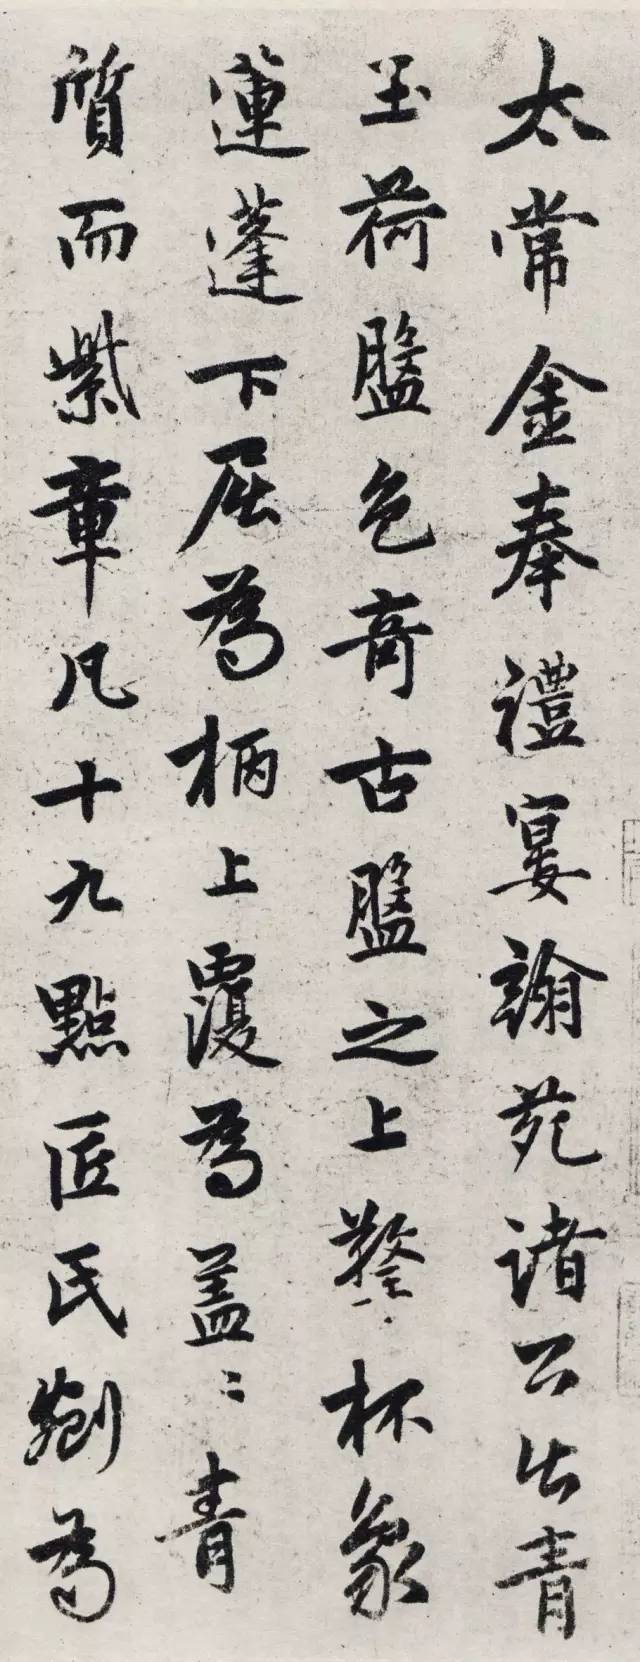 太常金奉禮宴翰苑諸公出青
玉荷盤色奇古盤之上鼇杯象
蓮蓬下屈為柄上覆為蓋〻青
質而紫章凡十九點匠氏刻為